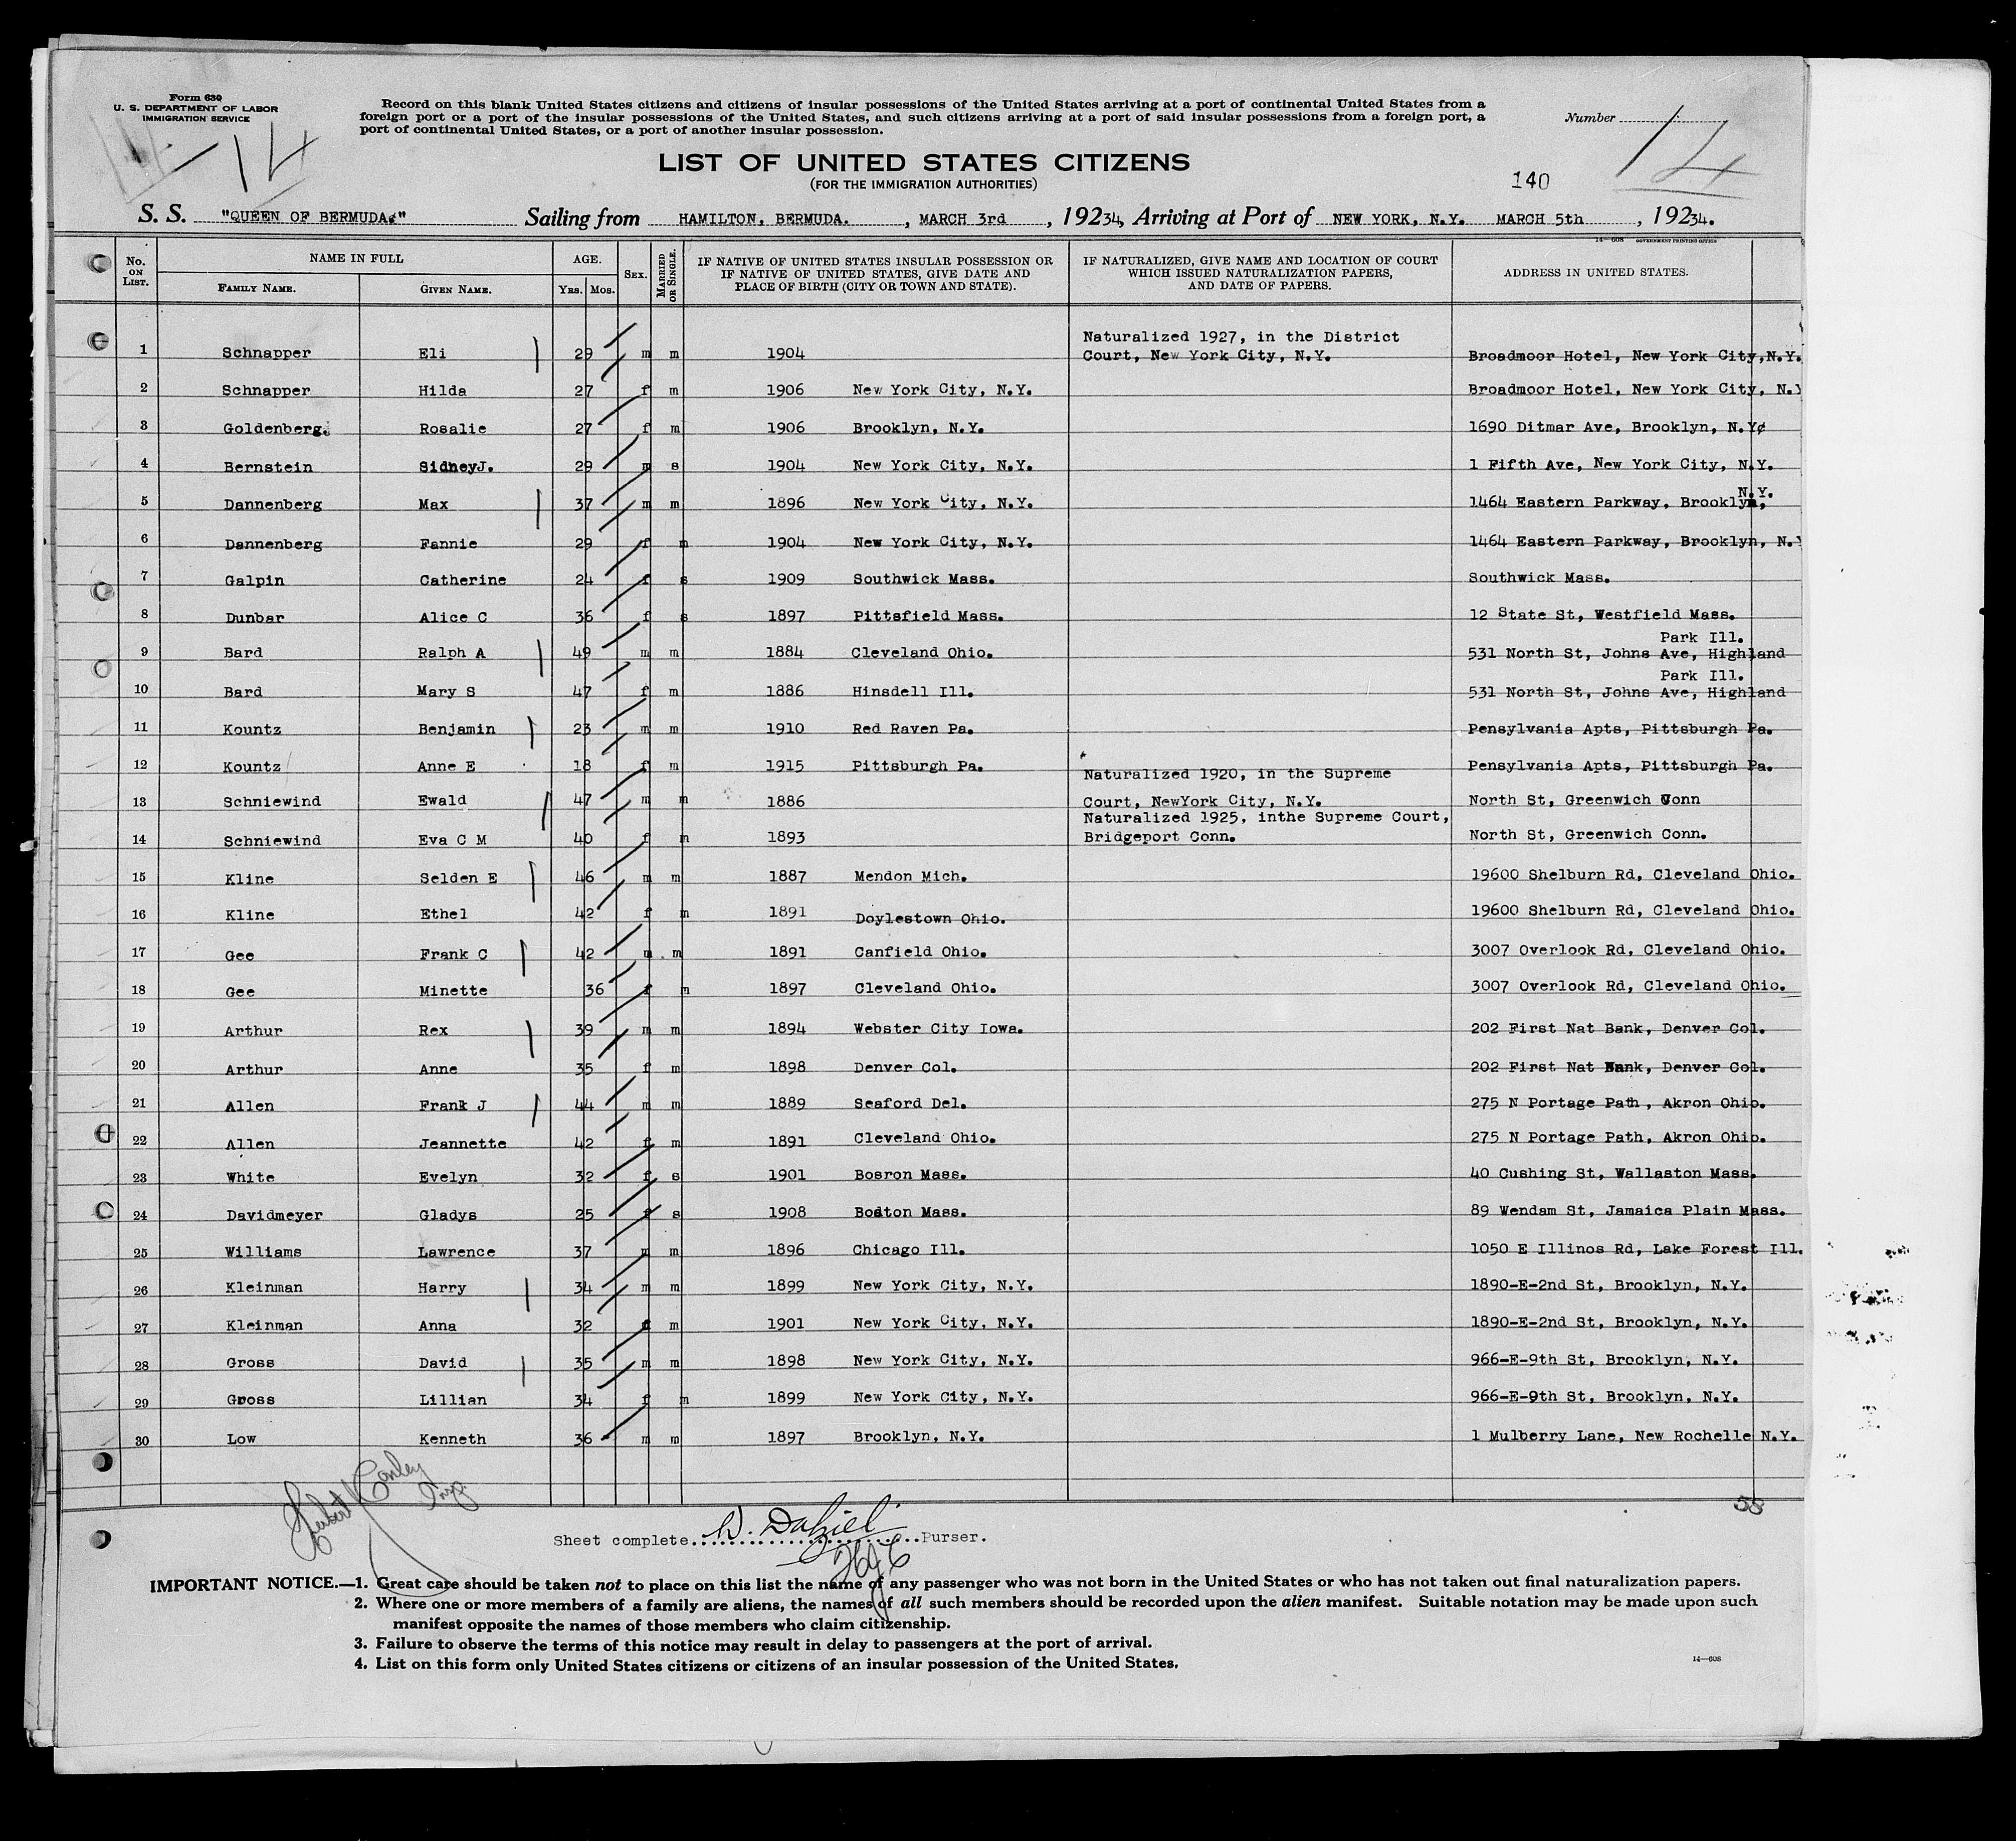 Form 630
U. S. DEPARTMENT OF LABOR
IMMIGRATION SERVICE
Record on this blank United States citizens and citizens of insular possessions of the United States arriving at a port of continental United States from a
foreign port or a port of the insular possessions of the United States, and such citizens arriving at a port of said insular possessions from a foreign port, a
port of continental United States, or a port of another insular possession.
Number 14
14
LIST OF UNITED STATES CITIZENS
(FOR THE IMMIGRATION AUTHORITIES)
140
S. S. "QUEEN OF BERMUDA" Sailing from HAMILTON, BERMUDA. , MARCH 3rd , 19234, Arriving at Port of NEW YORK, N.Y. MARCH 5th , 19234.
14—608 GOVERNMENT PRINTING OFFICE
No. ON LIST. NAME IN FULL AGE. SEX. MARRIED OR SINGLE. IF NATIVE OF UNITED STATES INSULAR POSSESSION OR IF NATIVE OF UNITED STATES, GIVE DATE AND PLACE OF BIRTH (CITY OR TOWN AND STATE). IF NATURALIZED, GIVE NAME AND LOCATION OF COURT WHICH ISSUED NATURALIZATION PAPERS, AND DATE OF PAPERS. ADDRESS IN UNITED STATES.
FAMILY NAME. GIVEN NAME. YRS. MOS.
Naturalized 1927, in the District
1 Schnapper Eli 29 m m 1904 Court, New York City, N.Y. Broadmoor Hotel, New York City,N.Y.
2 Schnapper Hilda 27 f m 1906 New York City, N.Y. Broadmoor Hotel, New York City, N.Y
3 Goldenberg. Rosalie 27 f m 1906 Brooklyn, N.Y. 1690 Ditmar Ave, Brooklyn, N.Y
4 Bernstein SidneyJ. 29 m s 1904 New York City, N.Y. 1 Fifth Ave, New York City, N.Y.
N.Y.
5 Dannenberg Max 37 m m 1896 New York City, N.Y. 1464 Eastern Parkway, Brooklyn,
6 Dannenberg Fannie 29 f m 1904 New York City, N.Y. 1464 Eastern Parkway, Brooklyn, N.Y
7 Galpin Catherine 24 f s 1909 Southwick Mass. Southwick Mass.
8 Dunbar Alice C 36 f s 1897 Pittsfield Mass. 12 State St, Westfield Mass.
Park Ill.
9 Bard Ralph A 49 m m 1884 Cleveland Ohio. 531 North St, Johns Ave, Highland
Park Ill.
10 Bard Mary S 47 f m 1886 Hinsdell Ill. 531 North St, Johns Ave, Highland
11 Kountz Benjamin 23 m m 1910 Red Raven Pa. Pensylvania Apts, Pittsburgh Pa.
12 Kountz Anne E 18 f m 1915 Pittsburgh Pa. Pensylvania Apts, Pittsburgh Pa.
Naturalized 1920, in the Supreme
13 Schniewind Ewald 47 m m 1886 Court, NewYork City, N.Y. North St, Greenwich Conn
Naturalized 1925, inthe Supreme Court,
14 Schniewind Eva C M 40 f m 1893 Bridgeport Conn. North St, Greenwich Conn.
15 Kline Selden E 46 m m 1887 Mendon Mich. 19600 Shelburn Rd, Cleveland Ohio.
16 Kline Ethel 42 f m 1891 Doylestown Ohio. 19600 Shelburn Rd, Cleveland Ohio.
17 Gee Frank C 42 m m 1891 Canfield Ohio. 3007 Overlook Rd, Cleveland Ohio.
18 Gee Minette 36 f m 1897 Cleveland Ohio. 3007 Overlook Rd, Cleveland Ohio.
19 Arthur Rex 39 m m 1894 Webster City Iowa. 202 First Nat Bank, Denver Col.
20 Arthur Anne 35 f m 1898 Denver Col. 202 First Nat Bank, Denver Col.
21 Allen Frank J 44 m m 1889 Seaford Del. 275 N Portage Path, Akron Ohio.
22 Allen Jeannette 42 f m 1891 Cleveland Ohio. 275 N Portage Path, Akron Ohio.
23 White Evelyn 32 f s 1901 Bosron Mass. 40 Cushing St, Wallaston Mass.
24 Davidmeyer Gladys 25 f s 1908 Boston Mass. 89 Wendam St, Jamaica Plain Mass.
25 Williams Lawrence 37 m m 1896 Chicago Ill. 1050 E Illinos Rd, Lake Forest Ill.
26 Kleinman Harry 34 m m 1899 New York City, N.Y. 1890-E-2nd St, Brooklyn, N.Y.
27 Kleinman Anna 32 f m 1901 New York City, N.Y. 1890-E-2nd St, Brooklyn, N.Y.
28 Gross David 35 m m 1898 New York City, N.Y. 966-E-9th St, Brooklyn, N.Y.
29 Gross Lillian 34 f m 1899 New York City, N.Y. 966-E-9th St, Brooklyn, N.Y.
30 Low Kenneth 36 m m 1897 Brooklyn, N.Y. 1 Mulberry Lane, New Rochelle N.Y.
58
Sheet complete W. Dalziel Purser.
IMPORTANT NOTICE.—1. Great care should be taken not to place on this list the name of any passenger who was not born in the United States or who has not taken out final naturalization papers.
2. Where one or more members of a family are aliens, the names of all such members should be recorded upon the alien manifest. Suitable notation may be made upon such
manifest opposite the names of those members who claim citizenship.
3. Failure to observe the terms of this notice may result in delay to passengers at the port of arrival.
4. List on this form only United States citizens or citizens of an insular possession of the United States.
14—608